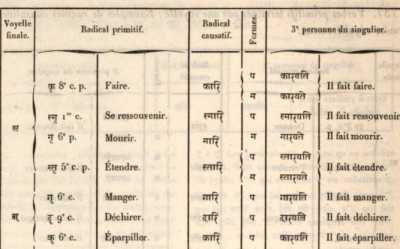 Voyelle finale. Radical primitif. Radical causatif. Formes. 3ᵉ personne du singulier.
कृ 8ᵉ c. p. Faire. कारि प कारयति Il fait faire.
म कारयते
ऋ स्मृ 1ʳᵉ c. Se ressouvenir. स्मारि प स्मारयति Il fait ressouvenir.
मृ 6ᵉ p. Mourir. मारि म मारयते Il fait mourir.
स्तृ 5ᵉ c. p. Étendre. स्तारि प स्तारयति Il fait étendre.
म स्तारयते
गॄ 6ᵉ c. Manger. गारि प गारयति Il fait manger.
ॠ दॄ 9ᵉ c. Déchirer. दारि प दारयति Il fait déchirer.
कॄ 6ᵉ c. Éparpiller. कारि प कारयति Il fait éparpiller.